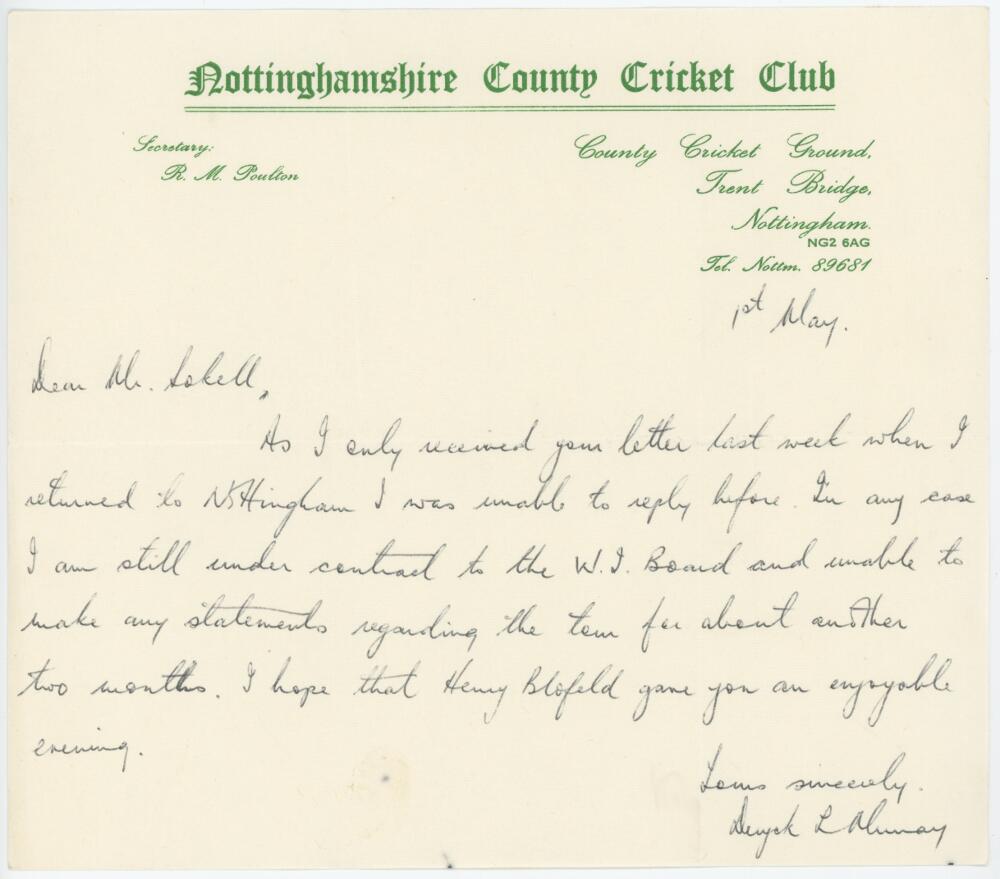 Nottinghamshire County Cricket Club
Secretary:
R. M. Poulton
County Cricket Ground,
Trent Bridge,
Nottingham.
NG2 6AG
Tel. Nottm. 89681
1st May.
Dear Mr. Sokell,
As I only received your letter last week when I
returned to Nottingham I was unable to reply before. In any case
I am still under contract to the W.I. Board and unable to
make any statements regarding the tour for about another
two months. I hope that Henry Blofeld gave you an enjoyable
evening.
Yours sincerely.
Deryck L Murray